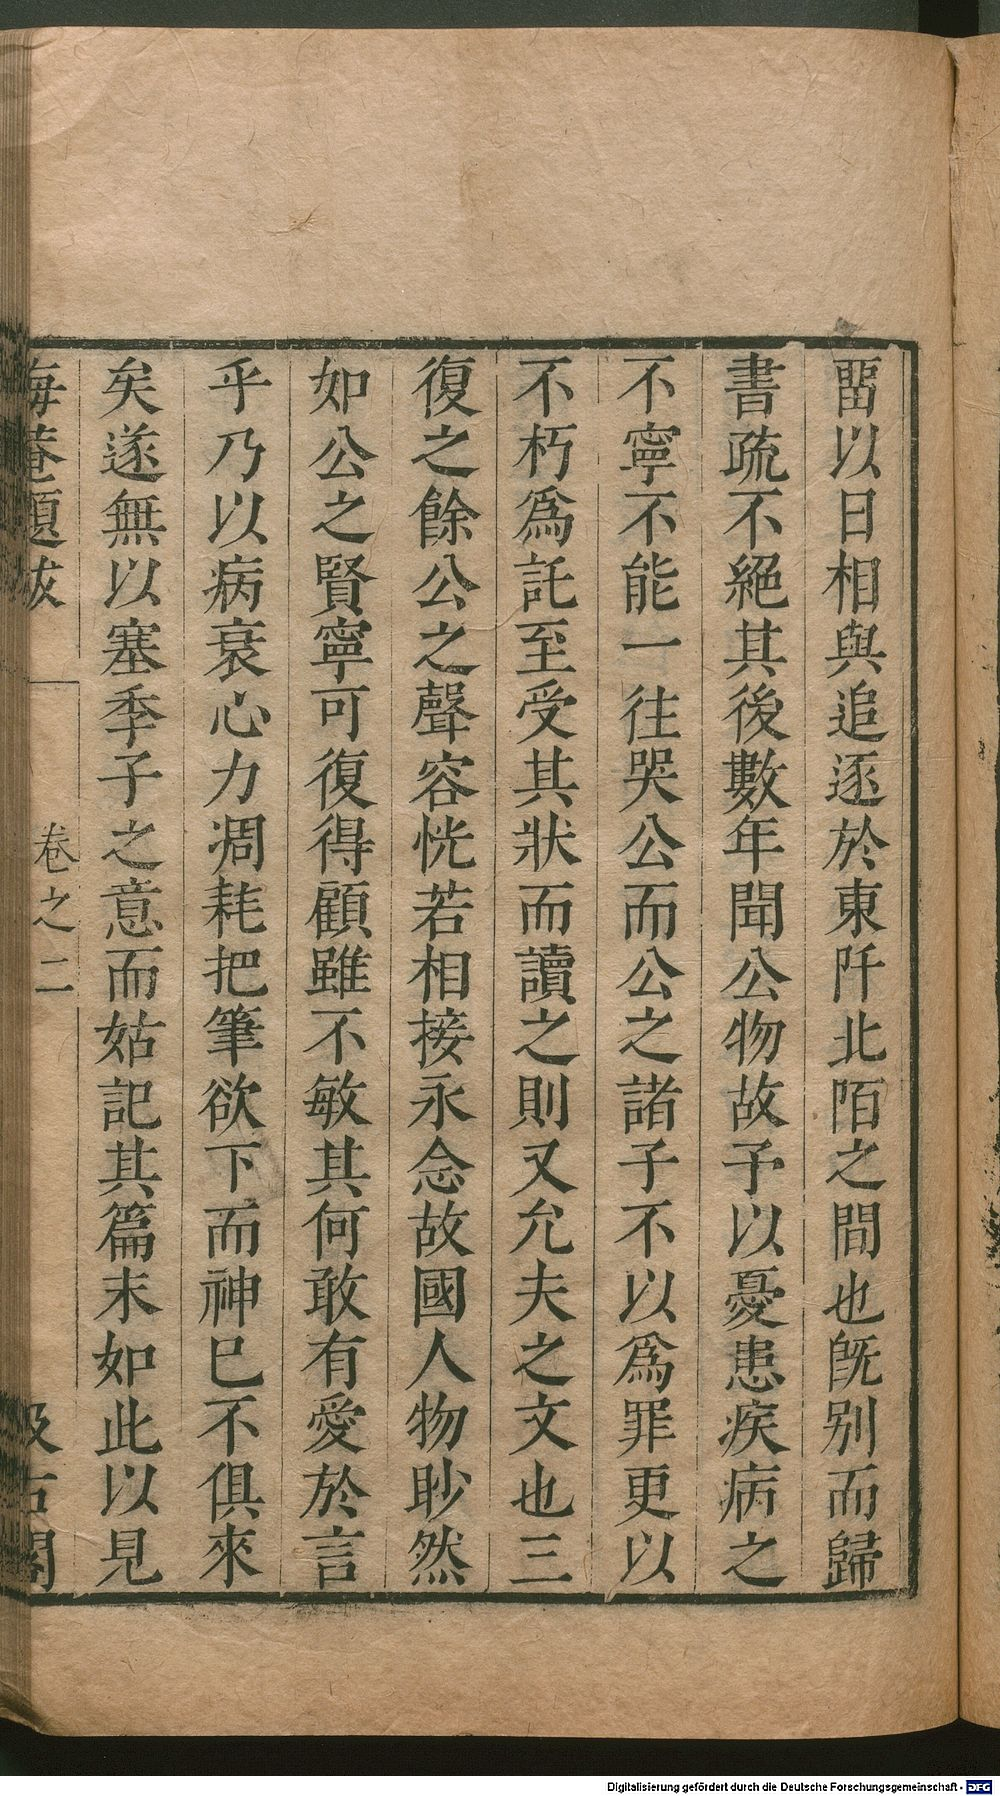 畱以日相與追逐於東阡北陌之間也旣別而歸
書疏不絕其後數年聞公物故予以憂患疾病之
不寧不能一往哭公而公之諸子不以爲罪更以
不朽爲託至受其狀而讀之則又允夫之文也三
復之餘公之聲容恍若相接永念故國人物眇然
如公之賢寧可復得顧雖不敏其何敢有愛於言
乎乃以病衰心力凋耗把筆欲下而神已不俱來
矣遂無以塞季子之意而姑記其篇末如此以見
晦菴題跋
卷之二
汲古閣
Digitalisierung gefördert durch die Deutsche Forschungsgemeinschaft - DFG